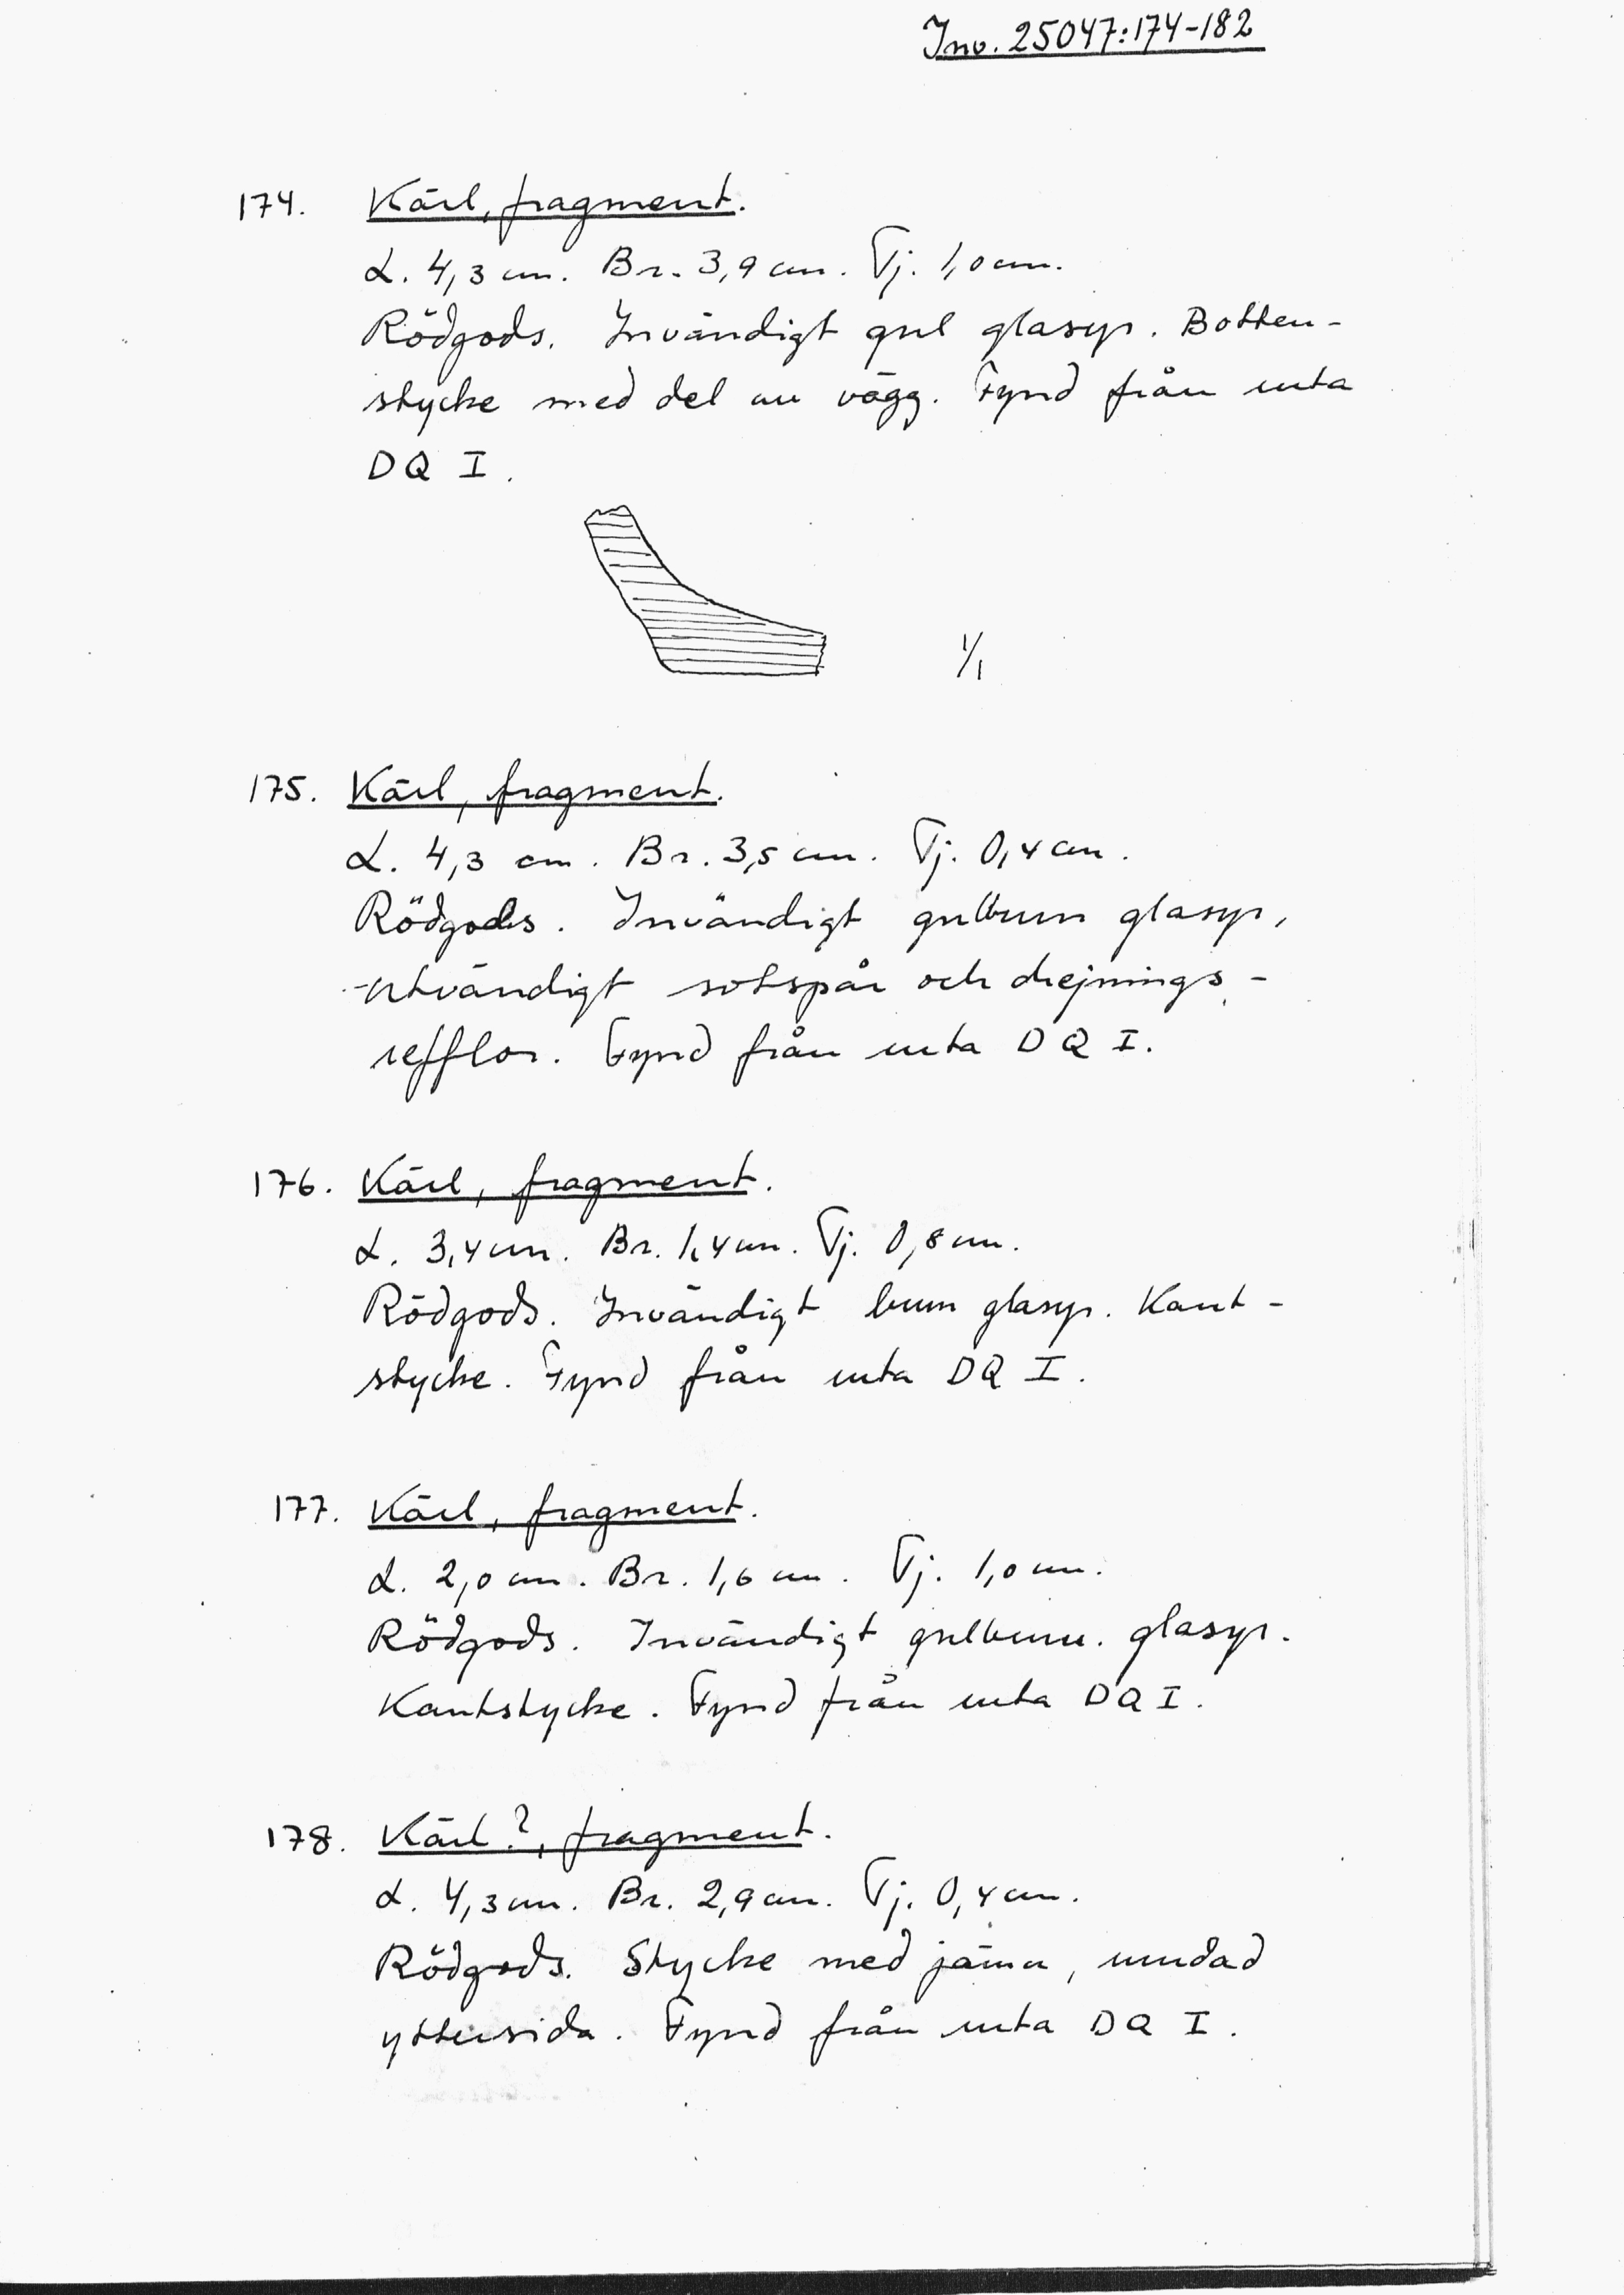 Inv. 25047:174-182
174. Kärl, fragment.
L. 4,3 cm. Br. 3,9 cm. Tj. 1,0 cm.
Rödgods. Invändigt gul glasyr. Botten-
stycke med del av vägg. Fynd från ruta
DQ I.
1/1
175. Kärl, fragment.
L. 4,3 cm. Br. 3,5 cm. Tj. 0,4 cm.
Rödgods. Invändigt gulbrun glasyr,
utvändigt sotspår och drejnings-
refflor. Fynd från ruta DQ I.
176. Kärl, fragment.
L. 3,4 cm. Br. 1,4 cm. Tj. 0,8 cm.
Rödgods. Invändigt brun glasyr. Kant-
stycke. Fynd från ruta DQ I.
177. Kärl, fragment.
L. 2,0 cm. Br. 1,6 cm. Tj. 1,0 cm.
Rödgods. Invändigt gulbrun. glasyr.
Kantstycke. Fynd från ruta DQ I.
178. Kärl?, fragment.
L. 4,3 cm. Br. 2,9 cm. Tj. 0,4 cm.
Rödgods. Stycke med jämn, rundad
yttersida. Fynd från ruta DQ I.